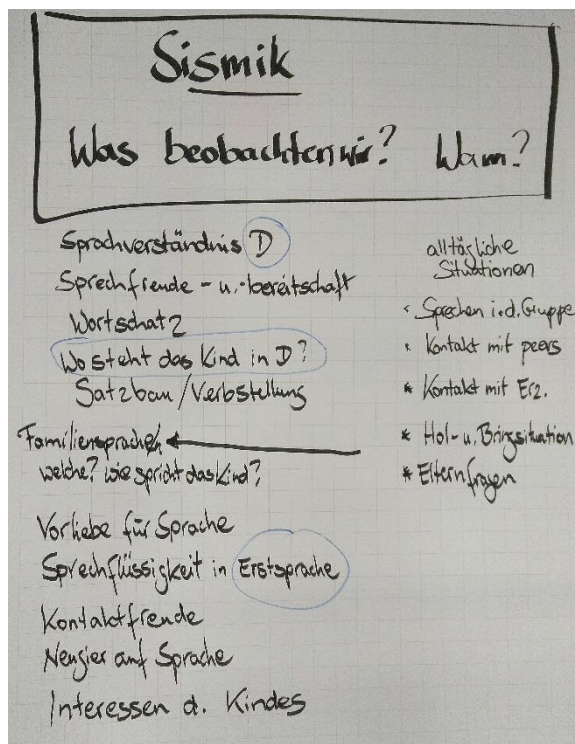 Sismik
Was beobachten wir? Wann?
Sprachverständnis D
Sprechfreude - u. -bereitschaft
Wortschatz
Wo steht das Kind in D?
Satzbau / Verbstellung
Familiensprache/n
welche? wie spricht das Kind?
Vorliebe für Sprache
Sprechflüssigkeit in Erstsprache
Kontaktfreude
Neugier auf Sprache
Interessen d. Kindes
alltägliche
Situationen
* Sprechen i.d. Gruppe
* Kontakt mit peers
* Kontakt mit Erz.
* Hol- u. Bringsituation
* Elternfragen